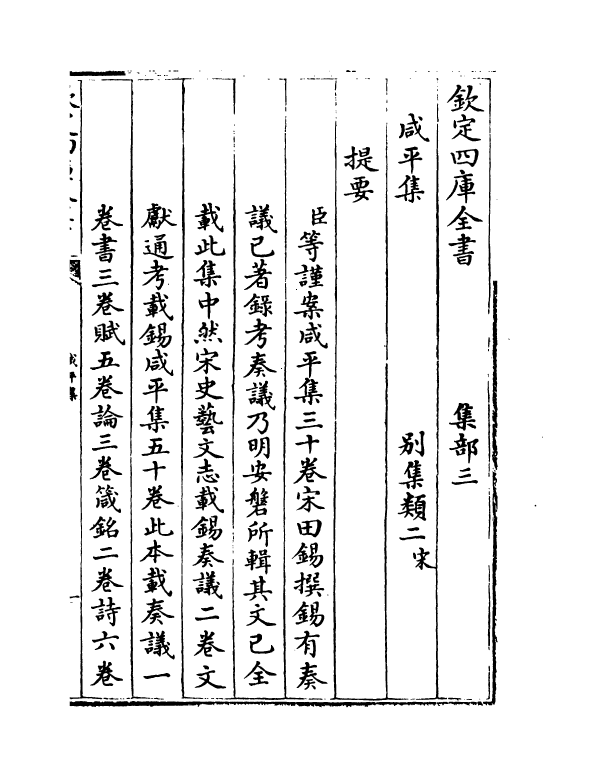 欽定四庫全書　集部三
咸平集　別集類二宋
提要
臣等謹案咸平集三十卷宋田錫撰錫有奏
議已著錄考奏議乃明安磐所輯其文已全
載此集中然宋史藝文志載錫奏議二卷文
獻通考載錫咸平集五十卷此本載奏議一
卷書三卷賦五卷論三卷箴銘二卷詩六卷
咸平集
一